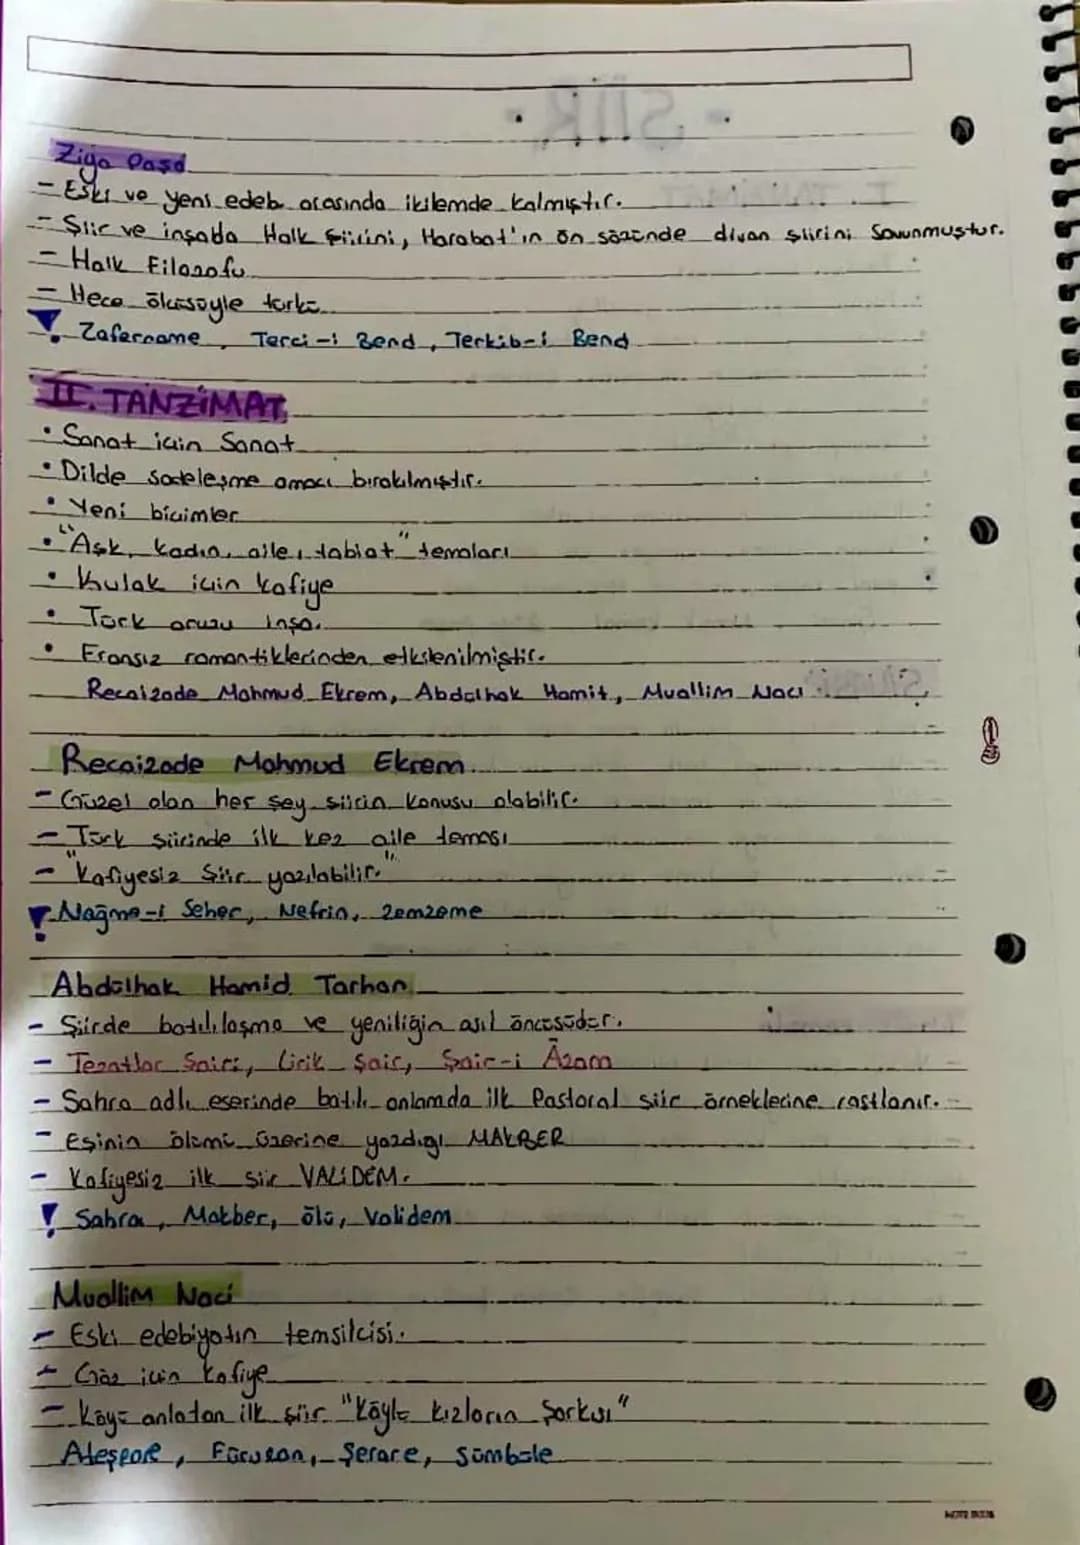 Ziya Paşa
- Eski ve yeni edeb. arasında ikilemde kalmıştır.
- Şiir ve inşada Halk şiirini, Harabat'ın ön sözünde divan şiirini savunmuştur.
- Halk Filozofu
- Hece ölçüsüyle türkü
! Zafername, Terci-i Bend, Terkib-i Bend
II. TANZİMAT
• Sanat için Sanat
• Dilde sadeleşme amacı bırakılmıştır.
• Yeni biçimler
• "Aşk, kadın, aile, tabiat" temaları
• Kulak için kafiye
• Türk aruzu inşa.
• Fransız romantiklerinden etkilenilmiştir.
Recaizade Mahmud Ekrem, Abdülhak Hamit, Muallim Naci
Recaizade Mahmud Ekrem
- Güzel olan her şey şiirin konusu olabilir.
- Türk şiirinde ilk kez aile teması
- "Kafiyesiz Şiir yazılabilir."
! Nağme-i Seher, Nefrin, Zemzeme
Abdülhak Hamid Tarhan
- Şiirde batılılaşma ve yeniliğin asıl öncüsüdür.
- Tezatlar Şairi, Lirik Şair, Şair-i Âzam
- Sahra adlı eserinde batılı anlamda ilk Pastoral şiir örneklerine rastlanır.
- Eşinin ölümü üzerine yazdığı MAKBER
- Kafiyesiz ilk şiir VALİDEM.
! Sahra, Makber, ölü, Validem
Muallim Naci
- Eski edebiyatın temsilcisi.
- Göz için kafiye
- Köyü anlatan ilk şiir "Köylü kızların Şarkısı"
Ateşpare, Füruzan, Şerare, Sümbüle
NOTE BOOK